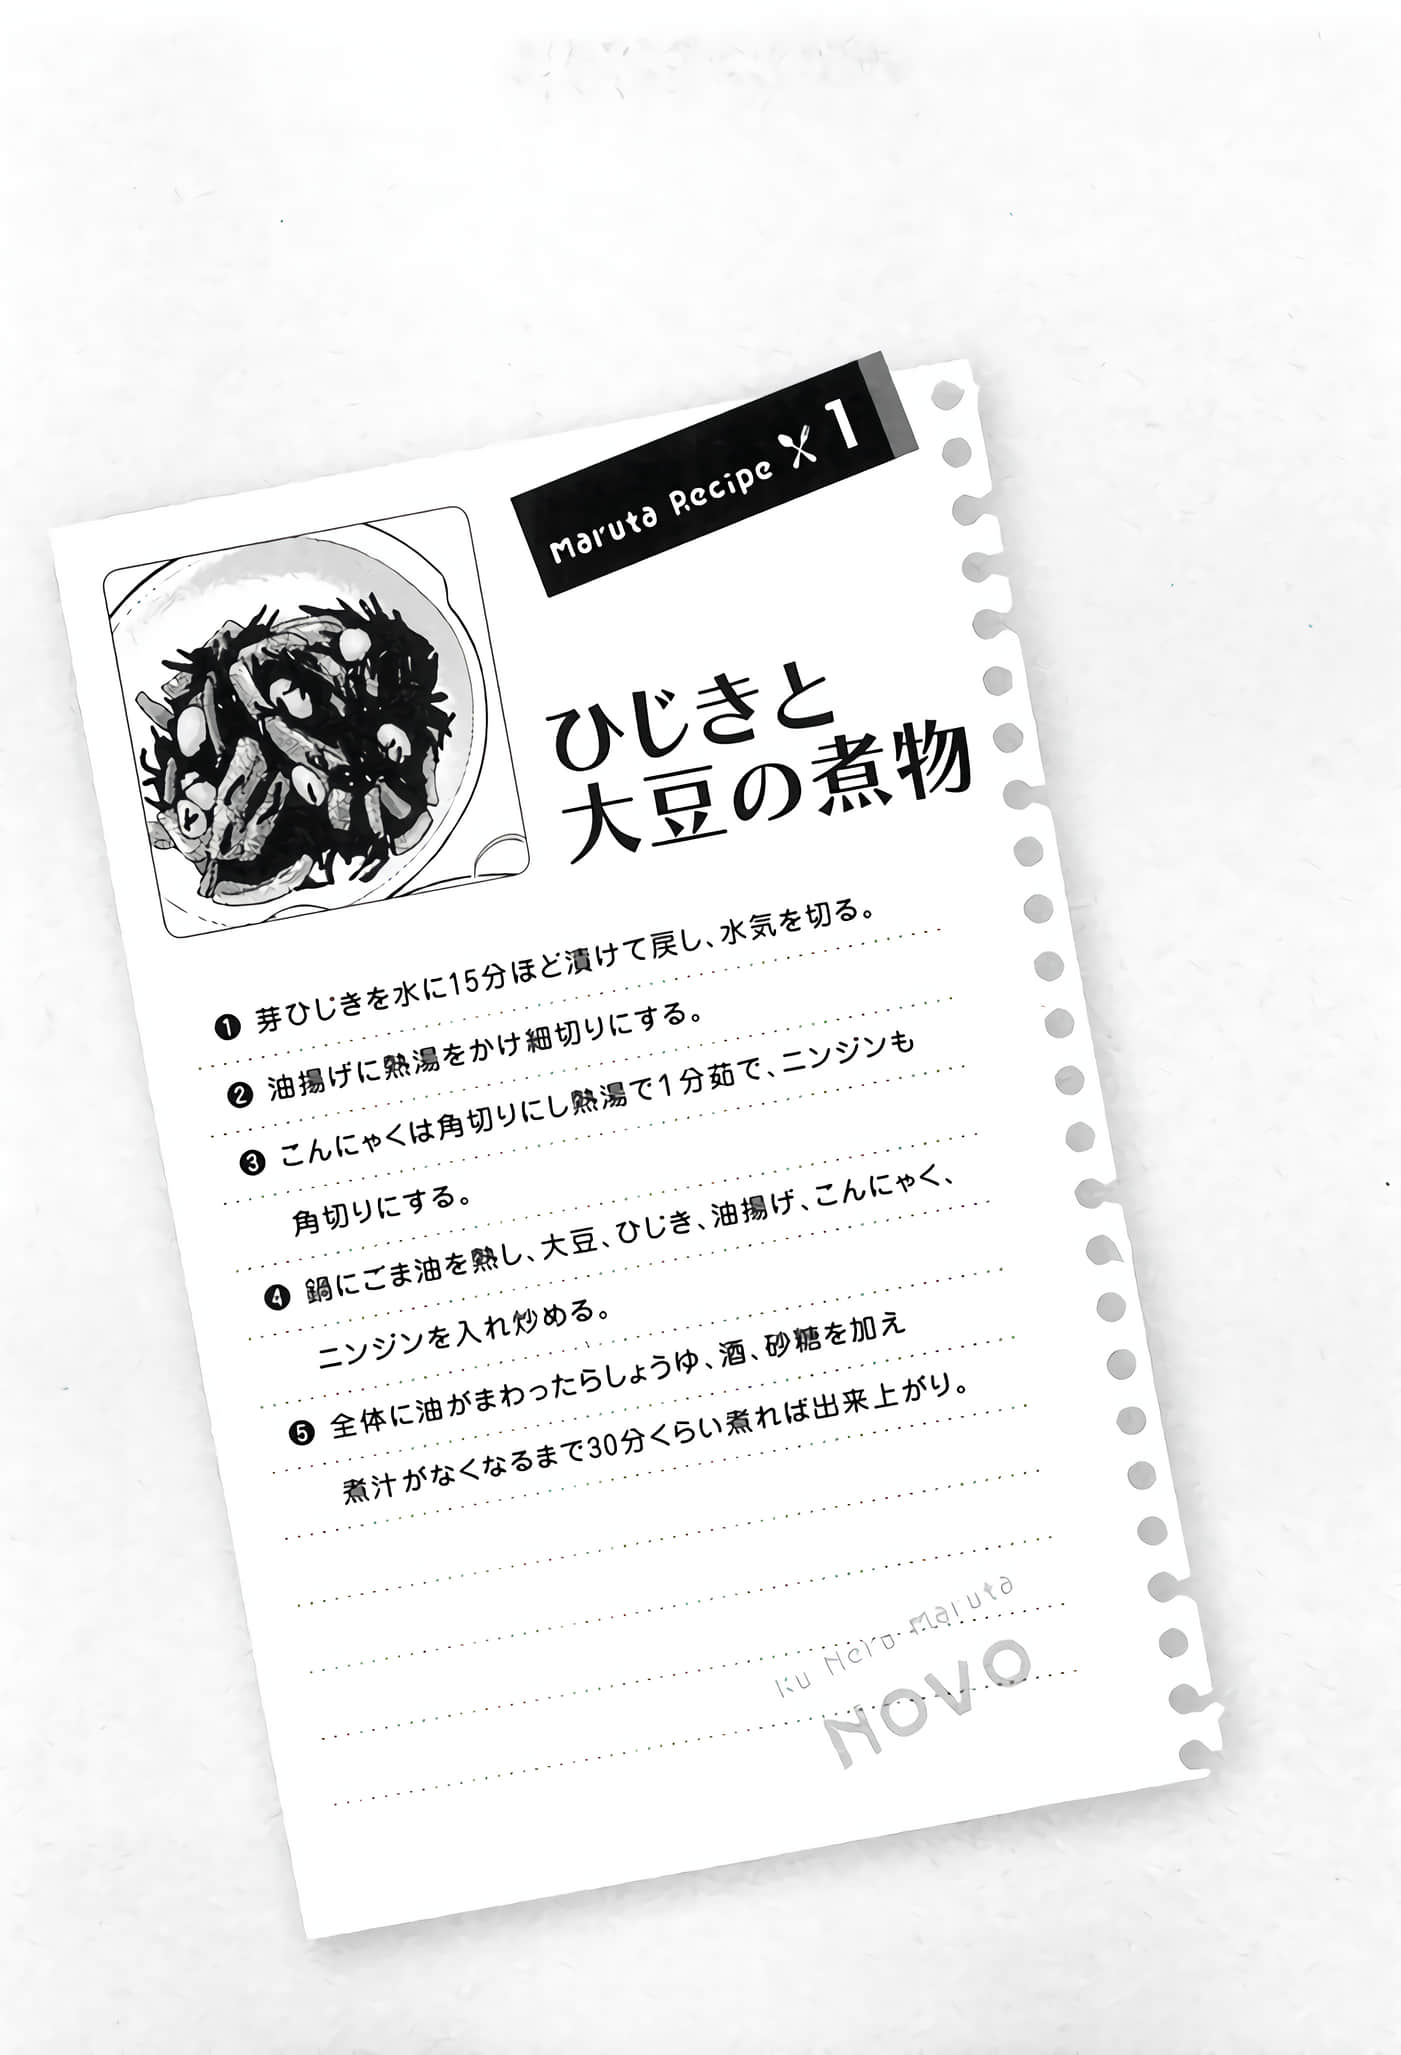 Maruta Recipe 1
ひじきと
大豆の煮物
❶ 芽ひじきを水に15分ほど漬けて戻し、水気を切る。
❷ 油揚げに熱湯をかけ細切りにする。
❸ こんにゃくは角切りにし熱湯で1分茹で、ニンジンも
角切りにする。
❹ 鍋にごま油を熱し、大豆、ひじき、油揚げ、こんにゃく、
ニンジンを入れ炒める。
❺ 全体に油がまわったらしょうゆ、酒、砂糖を加え
煮汁がなくなるまで30分くらい煮れば出来上がり。
Ku Nero Maruta
NOVO